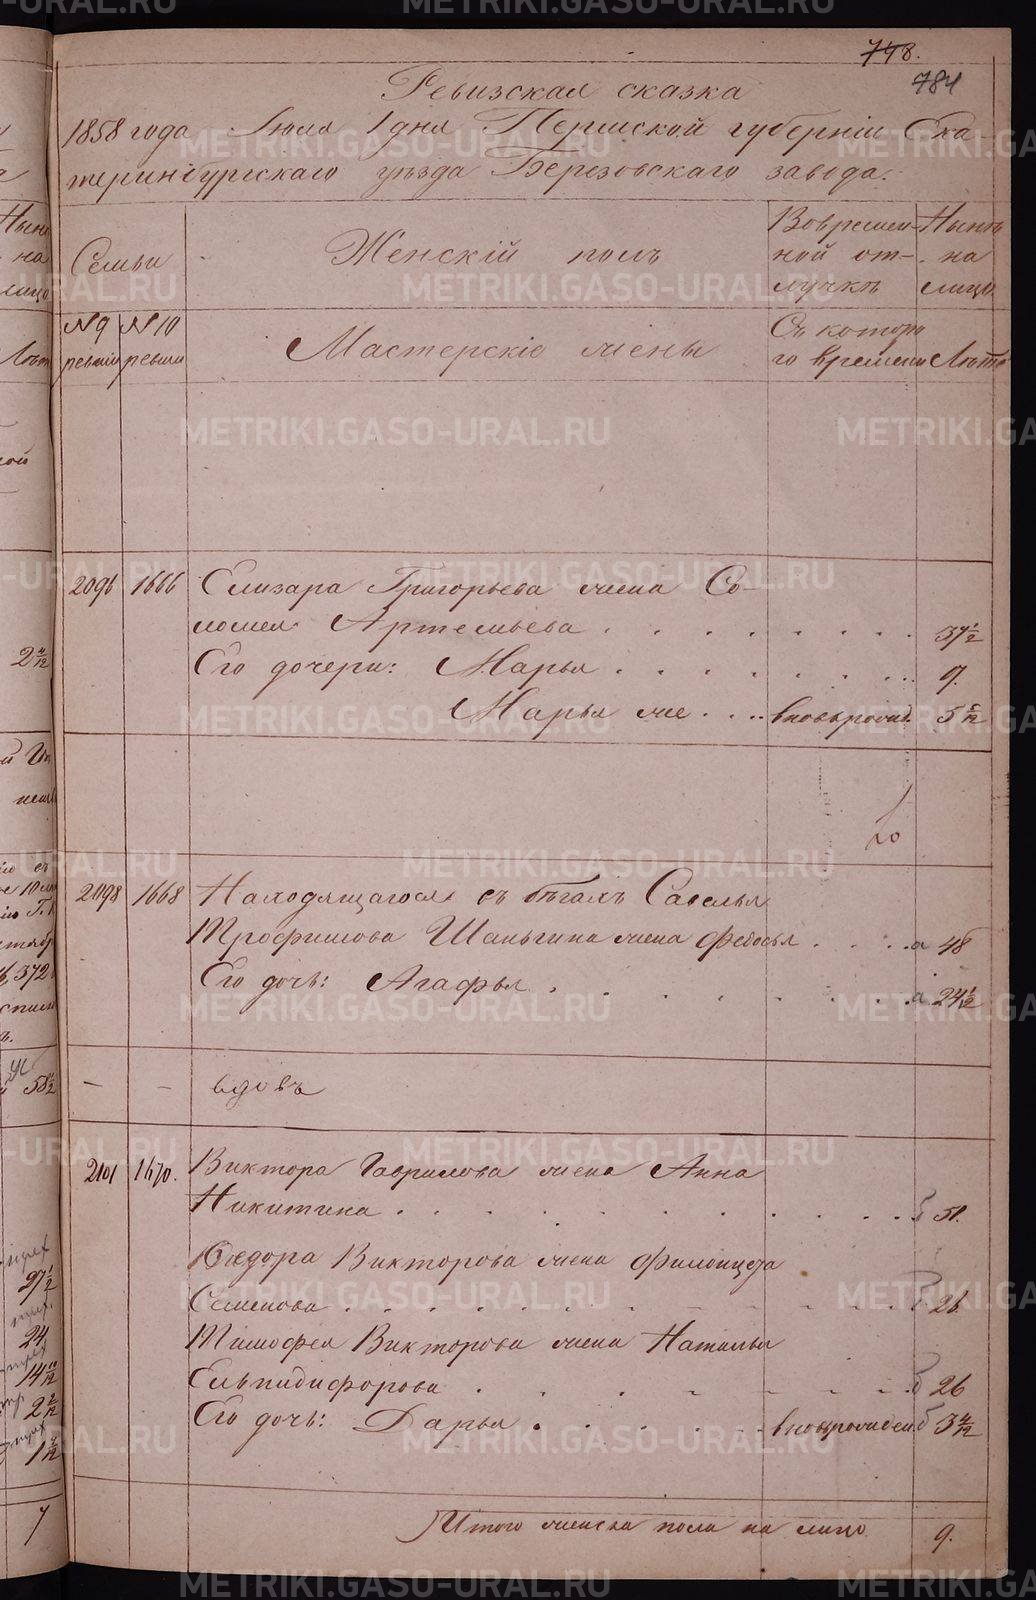 748.
784
Ревизская сказка
1858 года Июля 1 дня Пермской губернiи Ека-
теринбургскаго уѣзда Березовскаго завода.
Семьи
Женскiй полъ
Вовремен-
ной от-
лучкѣ
Нынѣ
на
лицо
№ 9
ревизiи
№ 10
ревизiи
Мастерскiе жены
Съ которо
го времени
Лѣта
2096 1666 Елизара Григорьева жена Со-
ломея Артемьева 37 1/2
Его дочери: Марья 9.
Марья же вновьрожд.
2098 1668 Находящагося въ бѣгахъ Савелья
Трофимова Шаньгина жена Федосья 48
Его дочь: Агафья 24 1/2
— — вдовъ
2101 1670. Виктора Гаврилова жена Анна
Никитина б 51.
Ѳедора Викторова жена Филонцета
Семенова б 26
Тимофея Викторова жена Наталья
Елпидифорова б 26
Его дочь: Дарья б
Итого женска пола на лицо 9.
METRIKI.GASO-URAL.RU